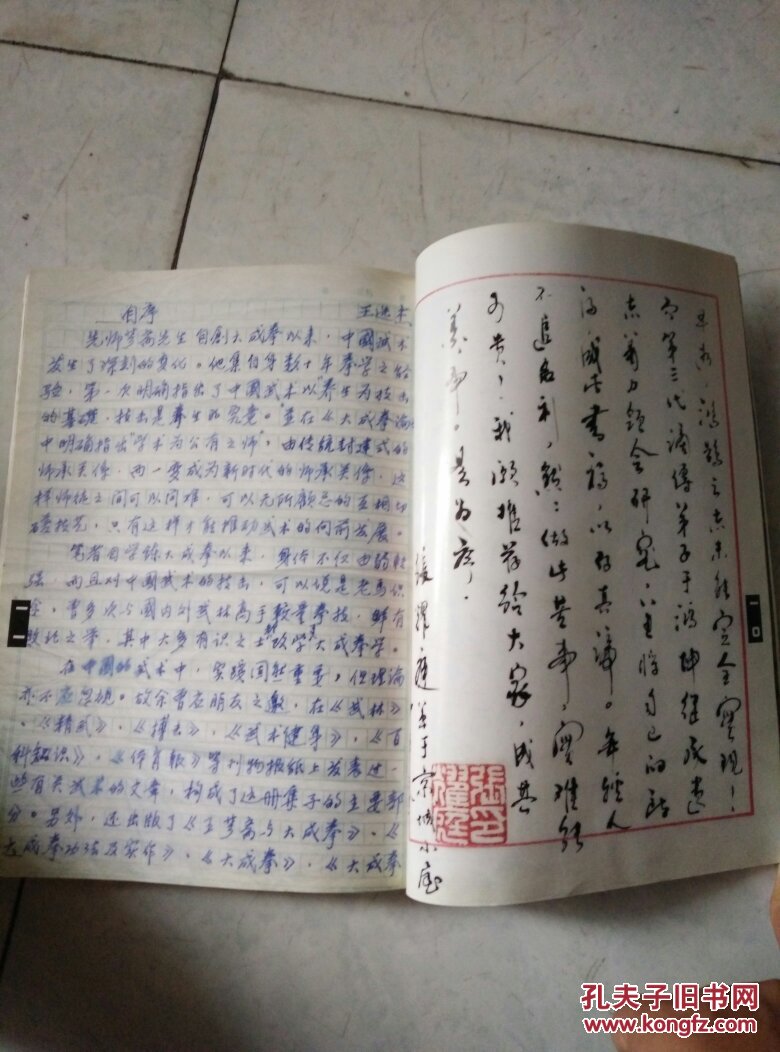 自序 王选杰
先师芗斋先生自创大成拳以来，中國武术
发生了深刻的变化。他集自身数十年拳学之经
验，第一次明确指出了中國武术以养生为技击
的基礎，技击是養生的究竟。並在《大成拳论》
中明确指出"学术为公有之师"，由传统封建式的
师承关係，而一变成为新时代的师承关係，这
样师徒之间可以问难，可以无所顾忌的互相切
磋技艺，只有这样才能推动武术的向前发展。
笔者自学練大成拳以来，身体不仅由弱
强，而且对中國武术的技击，可以说是老馬识
曾多次与國内外武林高手較量拳技，鲜有
敗北之举，其中大多有识之士改学大成拳学。
在中國的武术中，实践固然重要，但理论
亦不应忽視。故余曾应朋友之邀，在《武林》
、《精武》、《搏击》、《武术健身》、《百
科知识》、《体育報》等刊物报纸上发表过一
些有关武术的文章，構成了这册集子的主要部
分。另外，还出版了《王芗斋与大成拳》、《
大成拳功法及实作》、《大成拳》、《大成拳
实现！
第三代 传弟子于鸿坤继承遗
志 努力领会研究， 将自己的
成此书稿，以 其 。年轻人
不追名利， 做此苦事，实难能
可贵，我愿推荐给大家，成其
美事。是为序。
张 庭 于京城
张耀庭印
孔夫子旧书网
www.kongfz.com